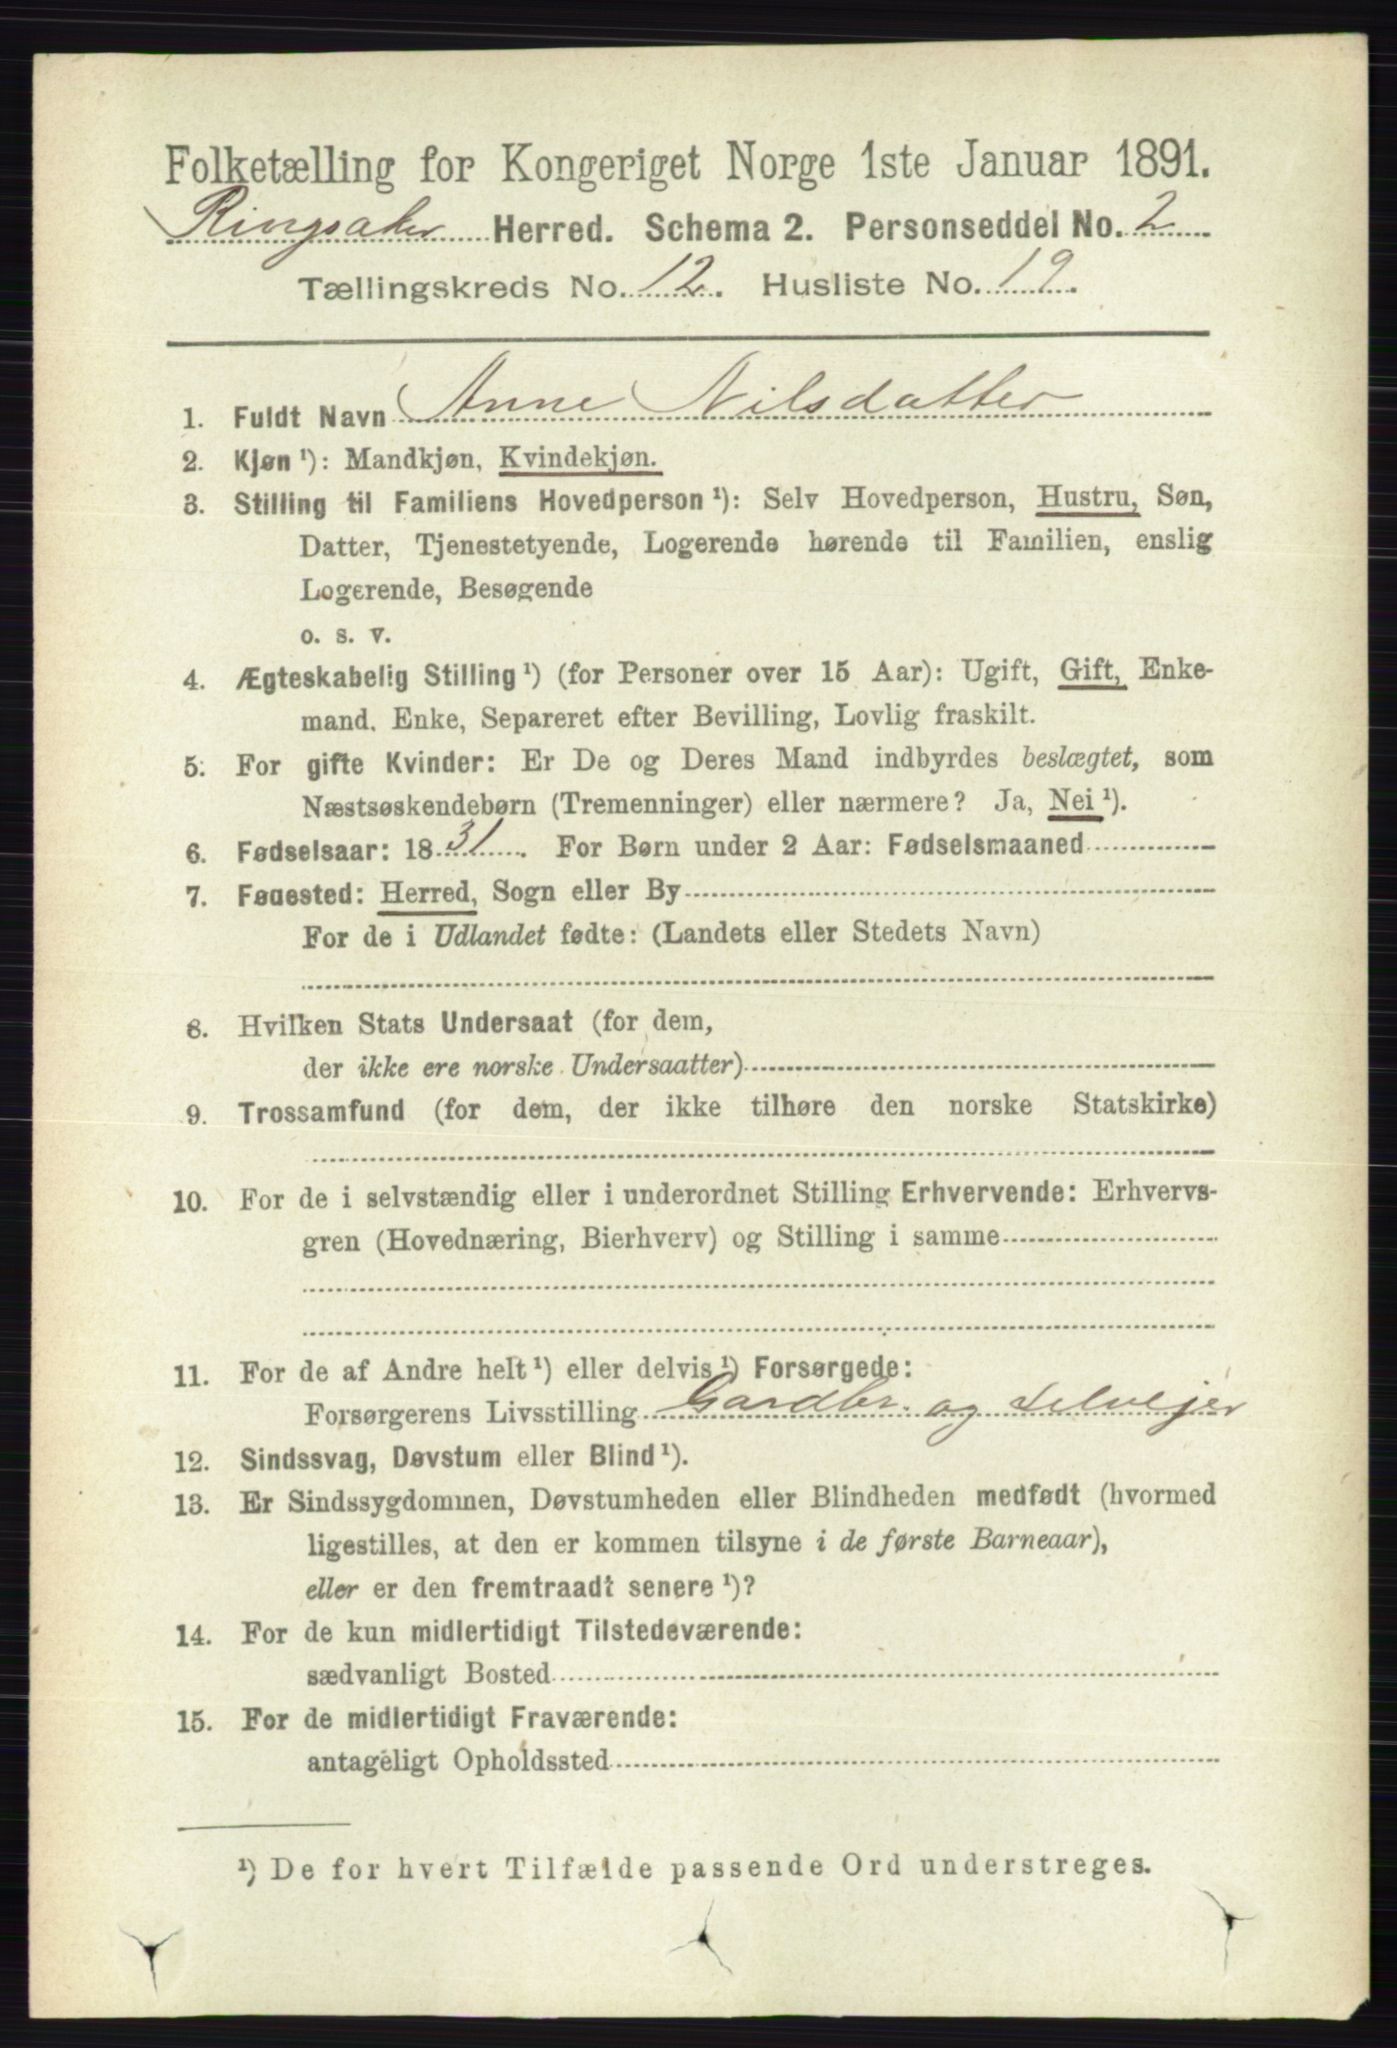 Folketælling for Kongeriget Norge 1ste Januar 1891.
Ringsaker Herred. Schema 2. Personseddel No. 2
Tællingskreds No. 12. Husliste No. 19.
1. Fuldt Navn Anne Nilsdatter
2. Kjøn ¹): Mandkjøn, Kvindekjøn.
3. Stilling til Familiens Hovedperson ¹): Selv Hovedperson, Hustru, Søn,
Datter, Tjenestetyende, Logerende hørende til Familien, enslig
Logerende, Besøgende
o. s. v.
4. Ægteskabelig Stilling ¹) (for Personer over 15 Aar): Ugift, Gift, Enke-
mand, Enke, Separeret efter Bevilling, Lovlig fraskilt.
5. For gifte Kvinder: Er De og Deres Mand indbyrdes beslægtet, som
Næstsøskendebørn (Tremenninger) eller nærmere? Ja, Nei ¹).
6. Fødselsaar: 1831. For Børn under 2 Aar: Fødselsmaaned
7. Fødested: Herred, Sogn eller By
For de i Udlandet fødte: (Landets eller Stedets Navn)
8. Hvilken Stats Undersaat (for dem,
der ikke ere norske Undersaatter)
9. Trossamfund (for dem, der ikke tilhøre den norske Statskirke)
10. For de i selvstændig eller i underordnet Stilling Erhvervende: Erhvervs-
gren (Hovednæring, Bierhverv) og Stilling i samme
11. For de af Andre helt ¹) eller delvis ¹) Forsørgede:
Forsørgerens Livsstilling Gardbr. og Selvejer
12. Sindssvag, Døvstum eller Blind ¹).
13. Er Sindssygdommen, Døvstumheden eller Blindheden medfødt (hvormed
ligestilles, at den er kommen tilsyne i de første Barneaar),
eller er den fremtraadt senere ¹)?
14. For de kun midlertidigt Tilstedeværende:
sædvanligt Bosted
15. For de midlertidigt Fraværende:
antageligt Opholdssted
¹) De for hvert Tilfælde passende Ord understreges.